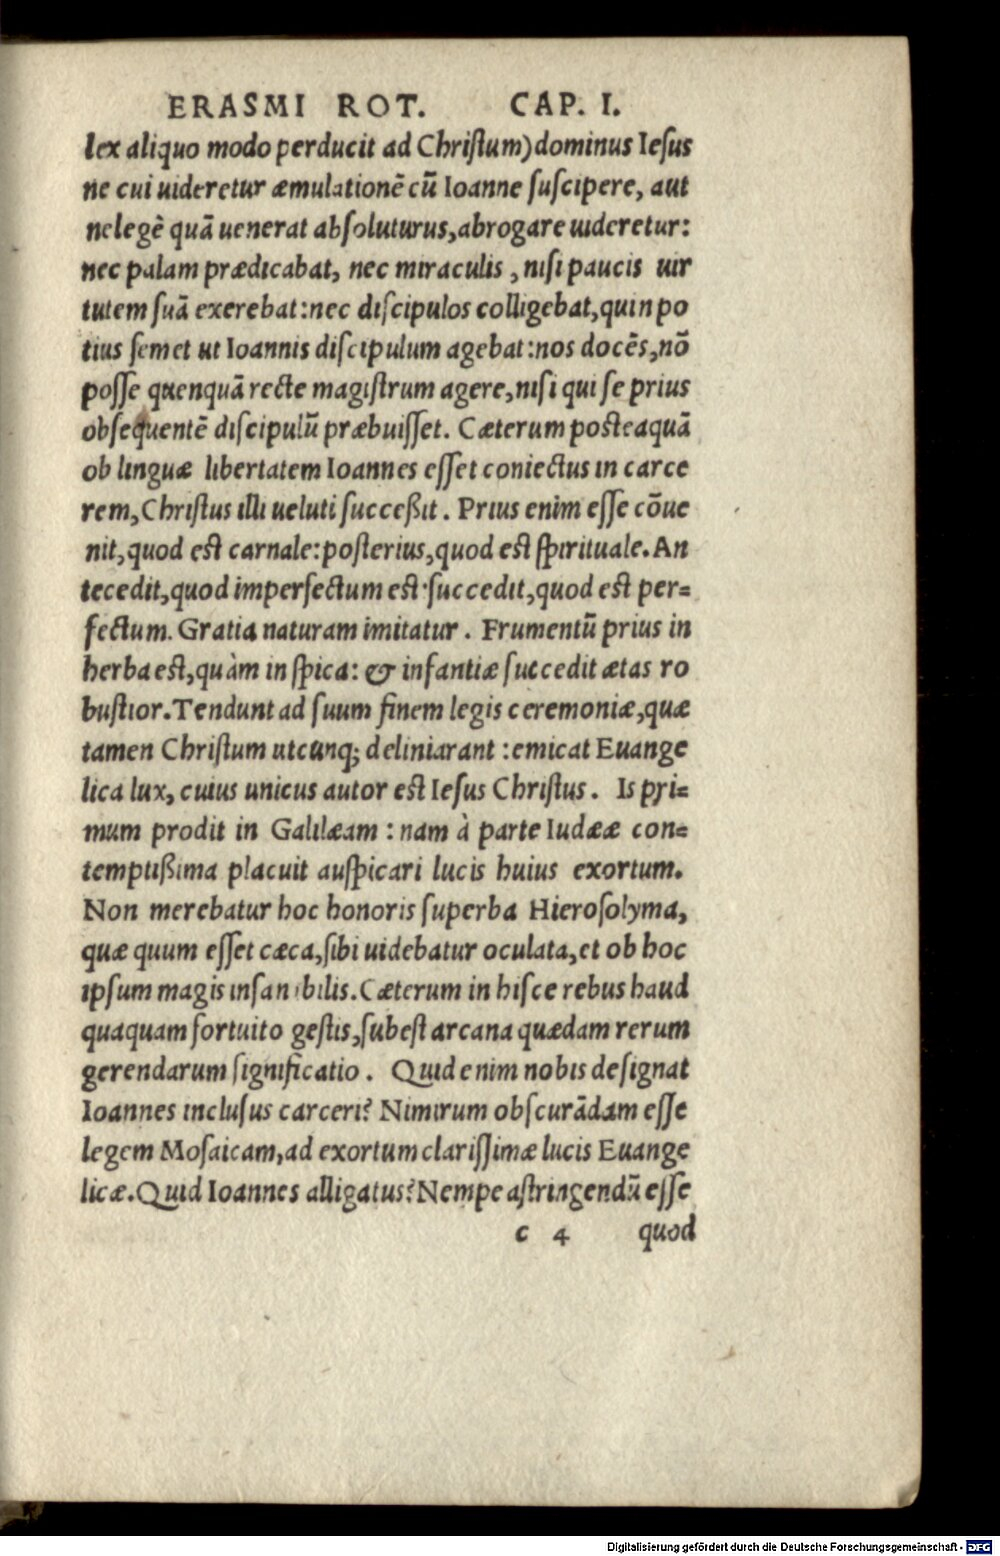 ERASMI ROT. CAP. I.
lex aliquo modo perducit ad Christum) dominus Iesus
ne cui uideretur æmulationē cū Ioanne suscipere, aut
ne legē quā uenerat absoluturus, abrogare uideretur:
nec palam prædicabat, nec miraculis, nisi paucis uir
tutem suā exerebat: nec discipulos colligebat, quin po
tius semet ut Ioannis discipulum agebat: nos docēs, nō
posse quenquā recte magistrum agere, nisi qui se prius
obsequentē discipulū præbuisset. Cæterum posteaquā
ob linguæ libertatem Ioannes esset coniectus in carce
rem, Christus illi ueluti succeßit. Prius enim esse cōue
nit, quod est carnale: posterius, quod est spirituale. An
tecedit, quod imperfectum est· succedit, quod est per=
fectum. Gratia naturam imitatur. Frumentū prius in
herba est, quàm in spica: & infantiæ succedit ætas ro
bustior. Tendunt ad suum finem legis ceremoniæ, quæ
tamen Christum utcunq; deliniarant: emicat Euange
lica lux, cuius unicus autor est Iesus Christus. Is pri=
mum prodit in Galilæam: nam à parte Iudææ con=
temptißima placuit auspicari lucis huius exortum.
Non merebatur hoc honoris superba Hierosolyma,
quæ quum esset cæca, sibi uidebatur oculata, et ob hoc
ipsum magis insanibilis. Cæterum in hisce rebus haud
quaquam fortuito gestis, subest arcana quædam rerum
gerendarum significatio. Quid enim nobis designat
Ioannes inclusus carceri? Nimirum obscurādam esse
legem Mosaicam, ad exortum clarissimæ lucis Euange
licæ. Quid Ioannes alligatus? Nempe astringendū esse
c 4 quod
Digitalisierung gefördert durch die Deutsche Forschungsgemeinschaft - DFG